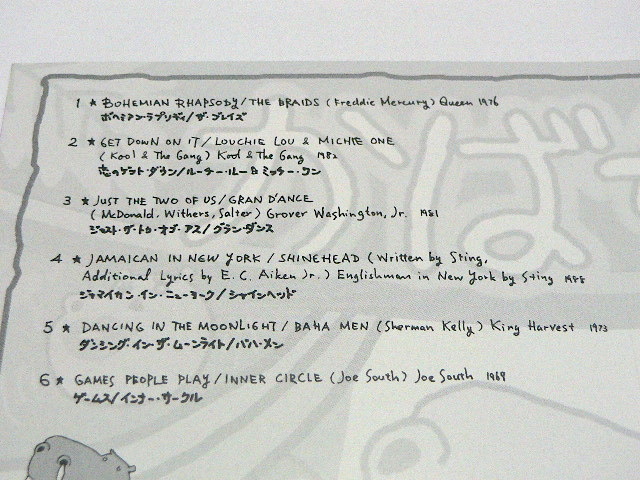 1 ★ BOHEMIAN RHAPSODY / THE BRAIDS (Freddie Mercury) Queen 1976
ボヘミアン・ラプソディ/ザ・ブレイズ
2 ★ GET DOWN ON IT / LOUCHIE LOU & MICHIE ONE
(Kool & The Gang) Kool & The Gang 1982
恋のゲット・ダウン/ルーチー・ルー&ミッチー・ワン
3 ★ JUST THE TWO OF US / GRAN D'ANCE
(McDonald, Withers, Salter) Grover Washington, Jr. 1981
ジャスト・ザ・トゥ・オブ・アス/グラン・ダンス
4 ★ JAMAICAN IN NEW YORK / SHINEHEAD (Written by Sting,
Additional Lyrics by E. C. Aiken Jr.) Englishman in New York by Sting 1988
ジャマイカン・イン・ニューヨーク/シャインヘッド
5 ★ DANCING IN THE MOONLIGHT / BAHA MEN (Sherman Kelly) King Harvest 1973
ダンシング・イン・ザ・ムーンライト/バハ・メン
6 ★ GAMES PEOPLE PLAY / INNER CIRCLE (Joe South) Joe South 1969
ゲームス/インナー・サークル